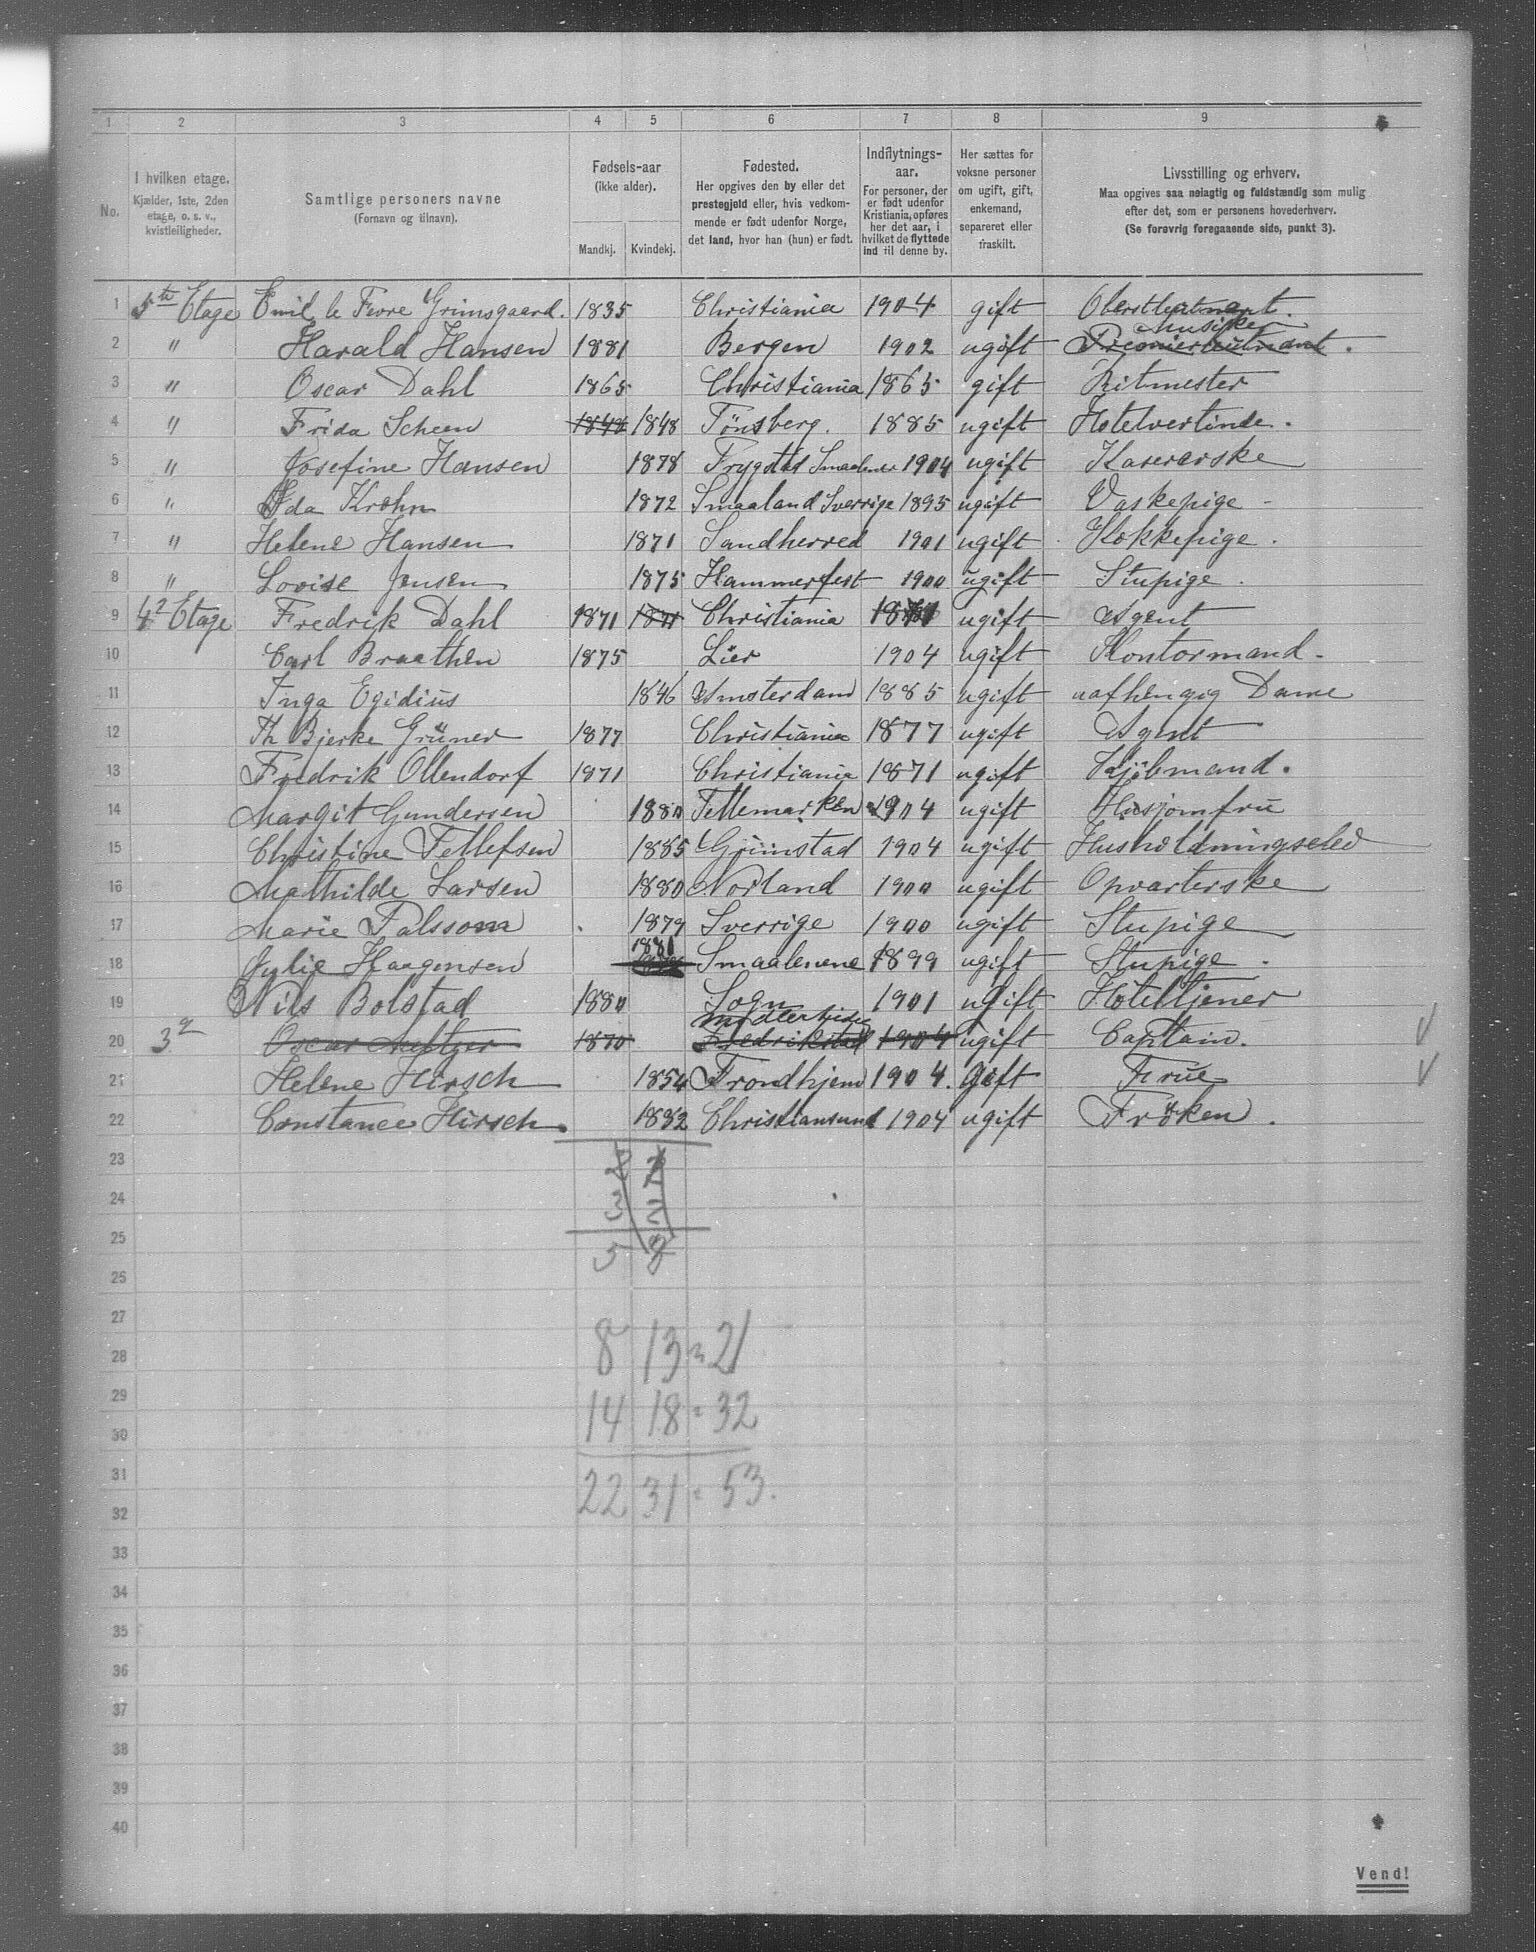 1 2 3 4 5 6 7 8 9
No. I hvilken etage. Kjælder, 1ste, 2den etage, o. s. v., kvistleiligheder. Samtlige personers navne (Fornavn og tilnavn). Fødsels-aar (ikke alder). Mandkj. Kvindekj. Fødested. Her opgives den by eller det prestegjeld eller, hvis vedkommende er født udenfor Norge, det land, hvor han (hun) er født. Indflytnings-aar. For personer, der er født udenfor Kristiania, opføres her det aar, i hvilket de flyttede ind til denne by. Her sættes for voksne personer om ugift, gift, enkemand, separeret eller fraskilt. Livsstilling og erhverv. Maa opgives saa nøiagtig og fuldstændig som mulig efter det, som er personens hovederhverv. (Se forøvrig foregaaende side, punkt 3).
1 5te Etage Emil le Fevre Grimsgaard. 1835 Christiania 1904 gift Oberstleutnant.
2 " Harald Hansen 1881 Bergen 1902 ugift Musiker Premierleutnant.
3 " Oscar Dahl 1865 Christiania 1865 gift Ritmester
4 " Frida Scheen 1848 1848 Tönsberg. 1885 ugift Hotelvertinde.
5 " Josefine Hansen 1878 Trygstad Smaalenene 1904 ugift Kasererske
6 " Ida Krohn 1872 Smaaland Sverrige 1895 ugift Vaskepige
7 " Helene Hansen 1871 Sandherred 1901 ugift Kokkepige.
8 " Lovise Jensen 1875 Hammerfest 1900 ugift Stupige.
9 4de Etage Fredrik Dahl 1871 1871 Christiania 1871 ugift Agent
10 Carl Braathen 1875 Lier 1904 ugift Kontormand.
11 Inga Egidius 1846 Amsterdam 1885 ugift uafhengig Dame
12 Th Bjerke Grüner 1877 Christiania 1877 ugift Agent
13 Fredrik Ollendorf 1871 Christiania 1871 ugift Kjöbmand.
14 Margit Gundersen 1880 Tellemarken 1904 ugift Husjomfru
15 Christine Tellefsen 1885 Grimstad 1904 ugift Husholdningselev
16 Mathilde Larsen 1880 Norland 1900 ugift Opvarterske
17 Marie Palsson 1879 Sverrige 1900 ugift Stupige
18 Julie Haagensen 1881 Smaalenene 1899 ugift Stupige.
19 Nils Bolstad 1880 Sogn 1901 ugift Hoteltjener
20 3d Oscar 1870 Midlertidig Fredrikstad 1904 ugift Captain.
21 Helene Hirsch 1854 Trondhjem 1904. Gift Frue
22 Constance Hirsch. 1882 Christiansund 1904 ugift Fröken.
23
24 3
25
5 8
26
27
8 13 = 21
28
29
14 18 = 32
30
31
22 31 = 53.
32
33
34
35
36
37
38
39
40
Vend!